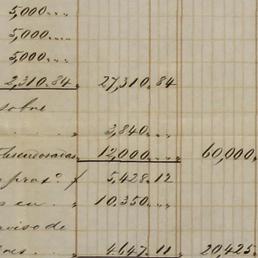 5,000 „ „
5,000 „ „
5,000 „ „
2,310.84 27,310.84
sobre
„ 3,840 „ „
12,000 „ „ 60,000
prox.º f 5,428.12
en „ 10,350 „ „
aviso de
„ 4.647.11 20,425